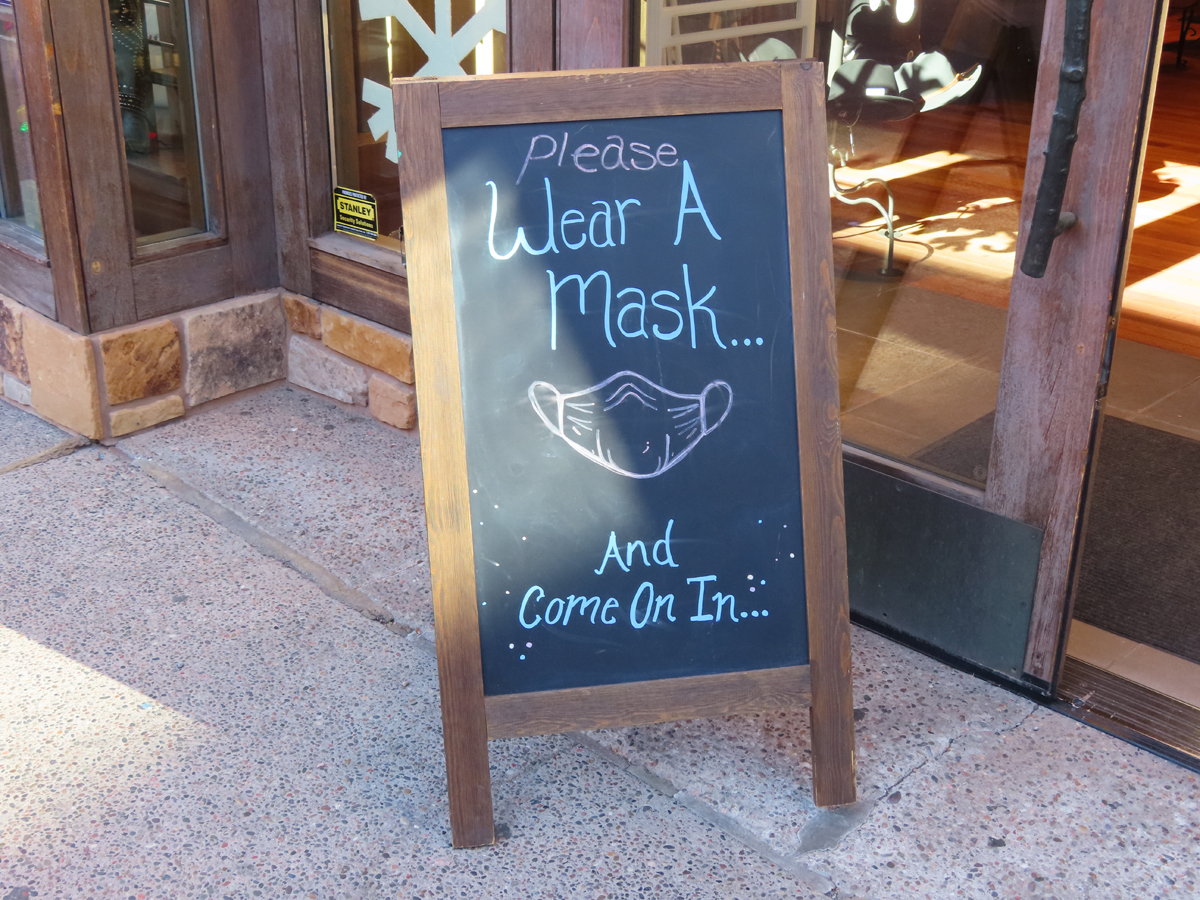 please
Wear A
Mask...
And
Come On In...
STANLEY
Security Solutions